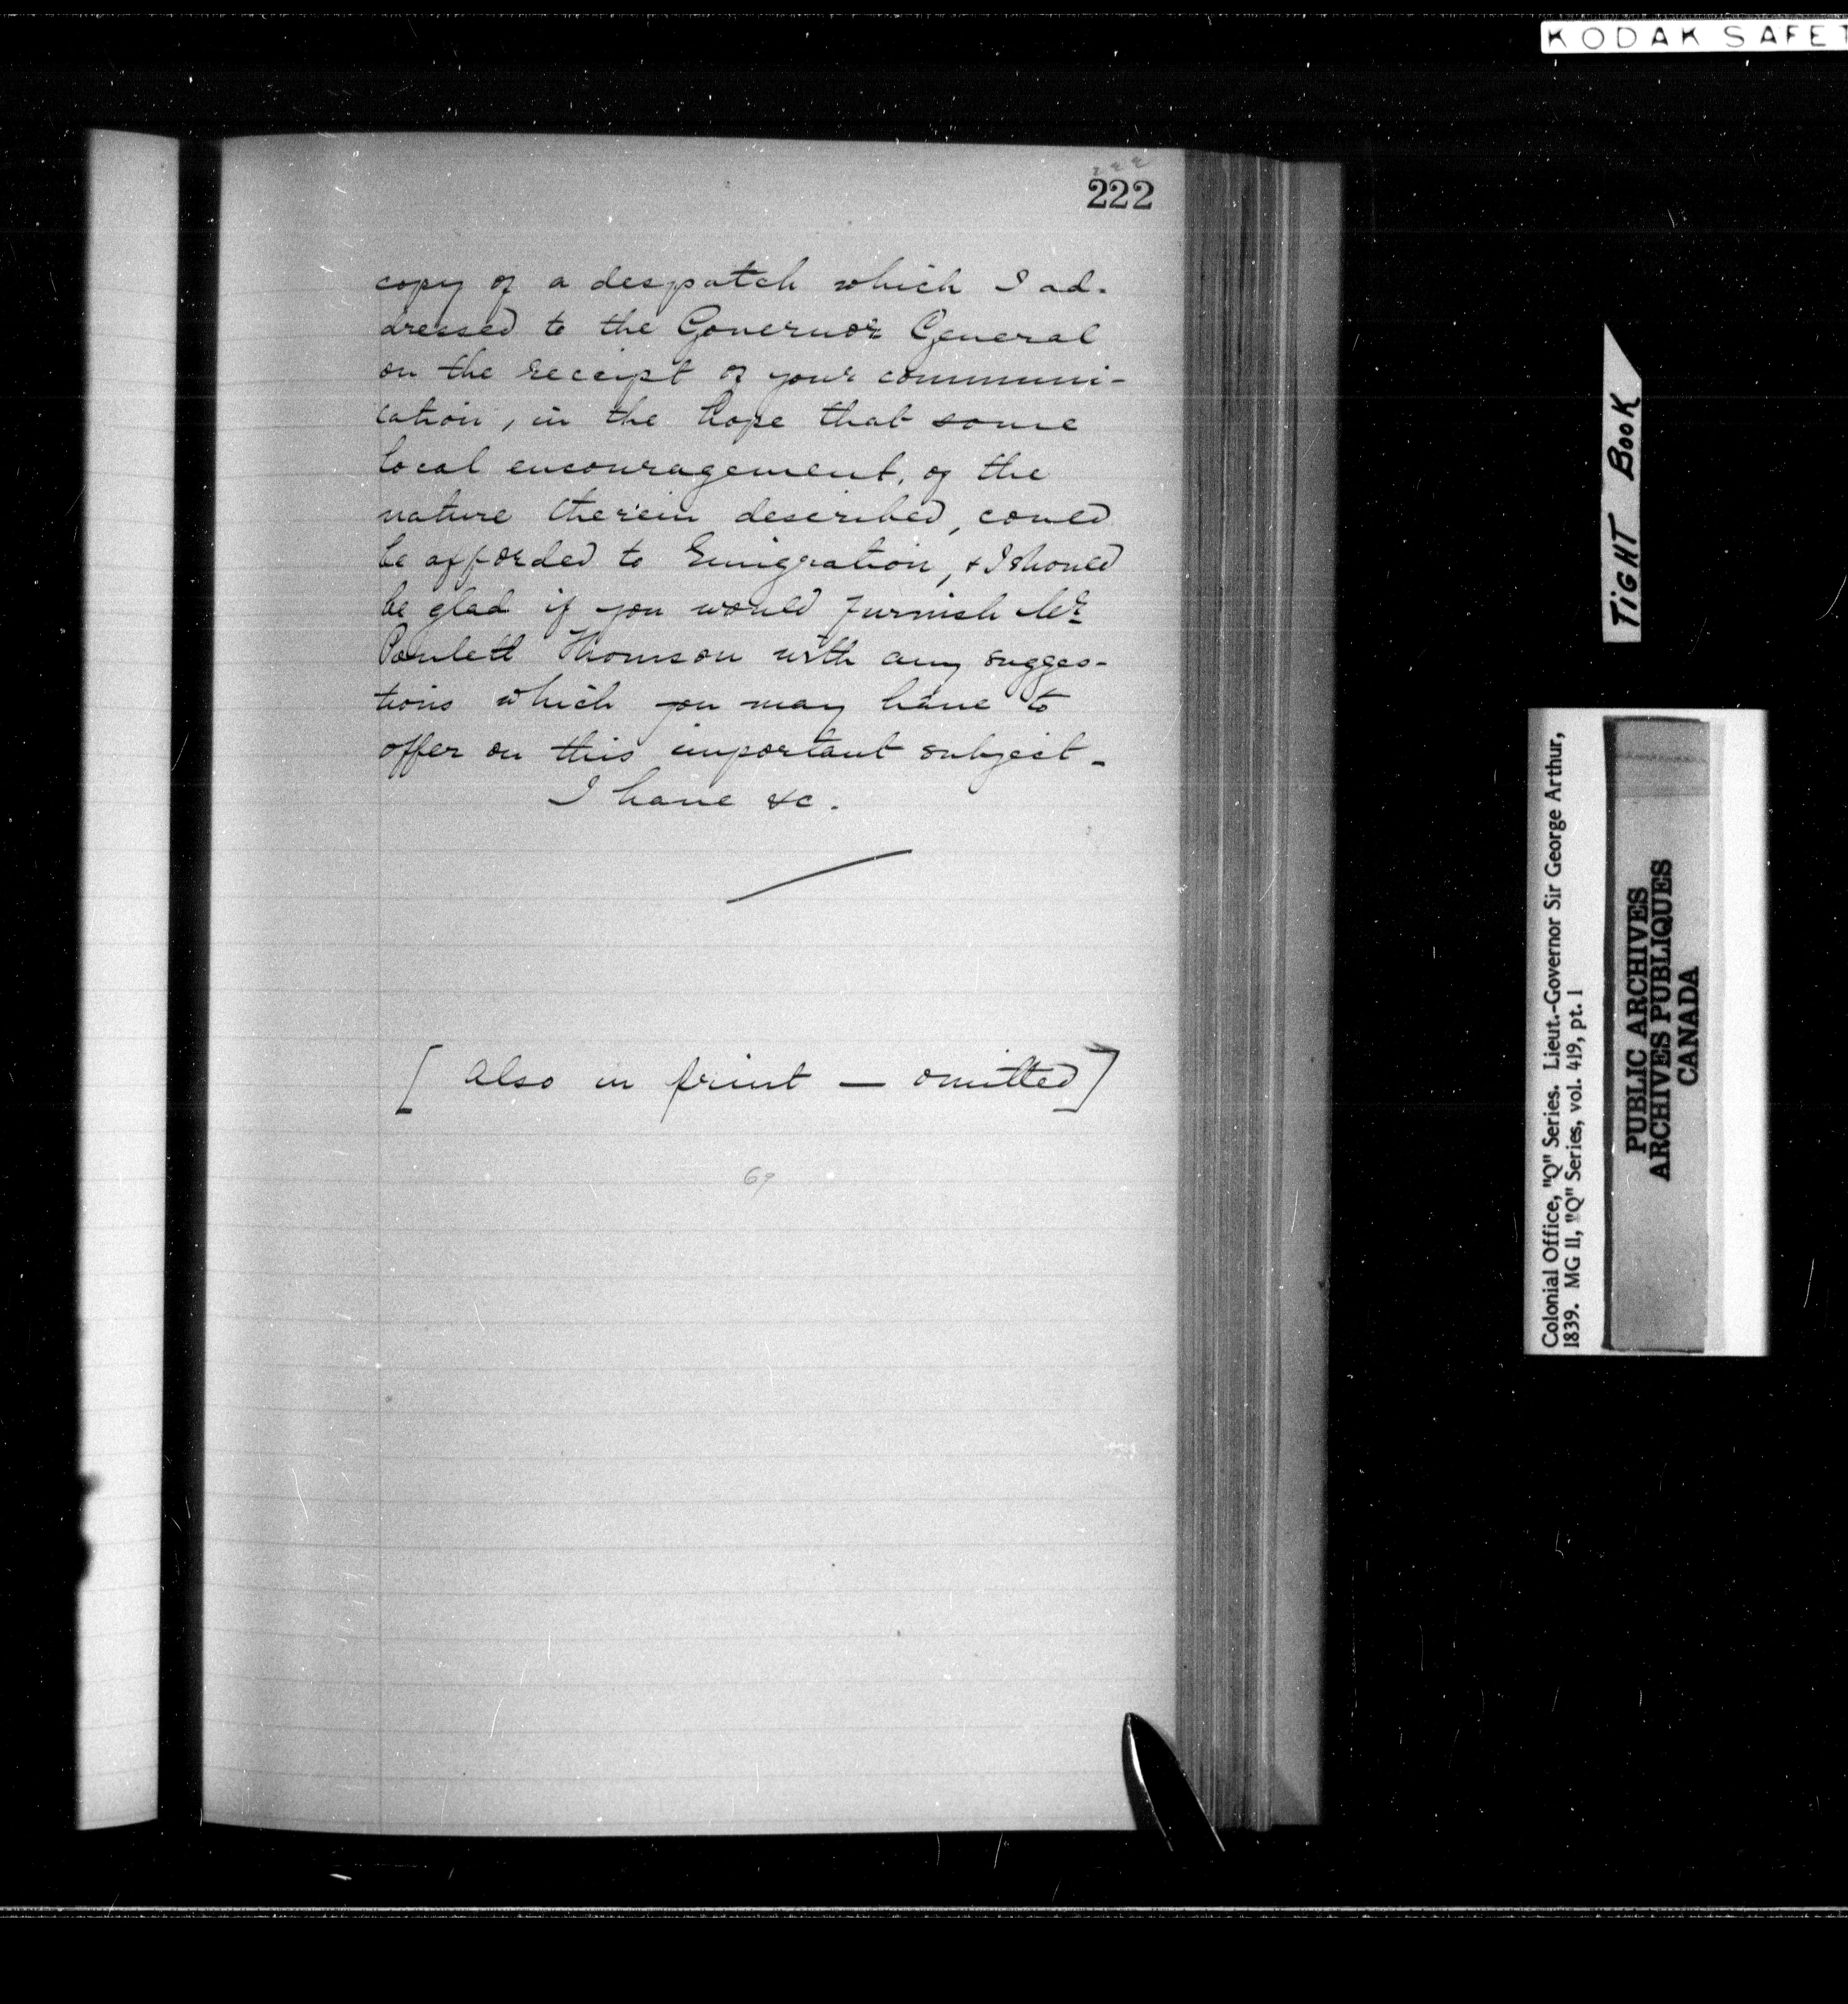 KODAK SAFET
222
222
copy of a despatch which I ad-
dressed to the Governor General
on the receipt of your communi-
cation, in the hope that some
local encouragement, of the
nature therein described, could
be afforded to Emigration, & I should
be glad if you would furnish Mr
Poulett Thomson with any sugges-
tions which you may have to
offer on this important subject -
I have &c.
[ also in print — omitted ]
69
TIGHT BOOK
Colonial Office, "Q" Series. Lieut.-Governor Sir George Arthur,
1839. MG 11, "Q" Series, vol. 419, pt. 1
PUBLIC ARCHIVES
ARCHIVES PUBLIQUES
CANADA